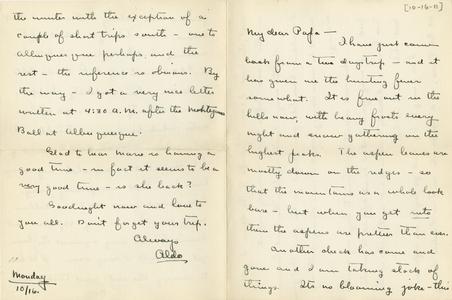 [10-16-11]
My dear Papa —
I have just come
back from a two day trip — and it
has given me the hunting fever
somewhat. It is fine out in the
hills now, with heavy frosts every
night and snow gathering on the
highest peaks. The aspen leaves are
mostly down on the ridges — so
that the mountains as a whole look
bare — but when you get into
them the aspens are prettier than ever.
Another check has come and
gone and I am taking stock of
things. Its no bloomin joke — this
the winter with the exception of a
couple of short trips south — one to
Albuquerque perhaps, and the
rest — the reference is obvious. By
the way — I got a very nice letter
written at 4:30 A.M. after the
Ball at Albuquerque.
Glad to hear Marie is having a
good time — in fact it seems to be a
very good time — is she back?
Goodnight now and love to
you all. Don't forget your trip.
Always
Aldo
Monday
10/16.